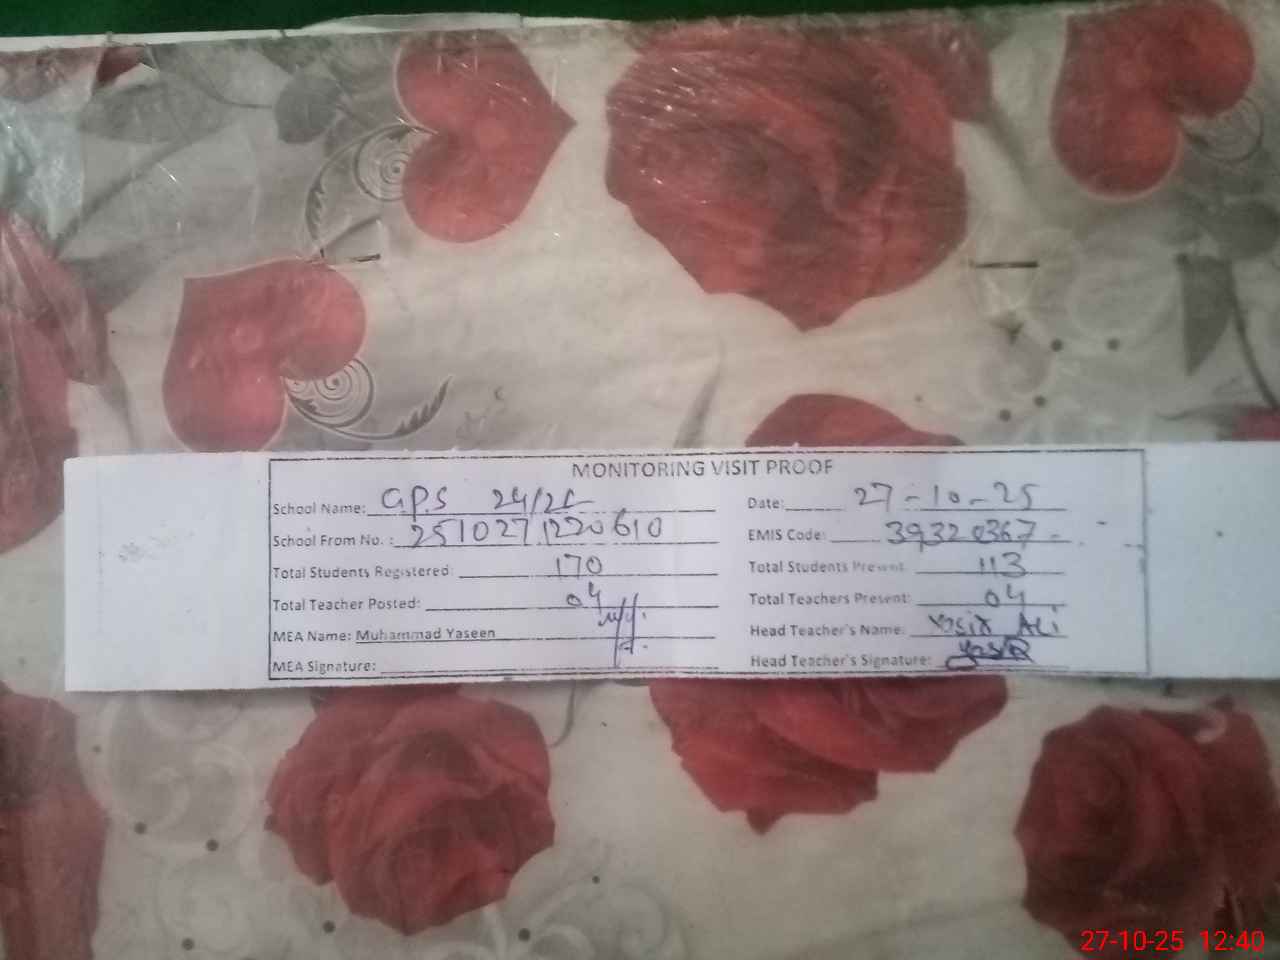 MONITORING VISIT PROOF
School Name: G.P.S 24/2L Date: 27-10-25
School From No. : 2510271220610 EMIS Code: 39320367
Total Students Registered: 170 Total Students Present: 113
Total Teacher Posted: 04 Total Teachers Present: 04
MEA Name: Muhammad Yaseen Head Teacher's Name: Yasir Ali
MEA Signature: Head Teacher's Signature: Yasir
27-10-25 12:40